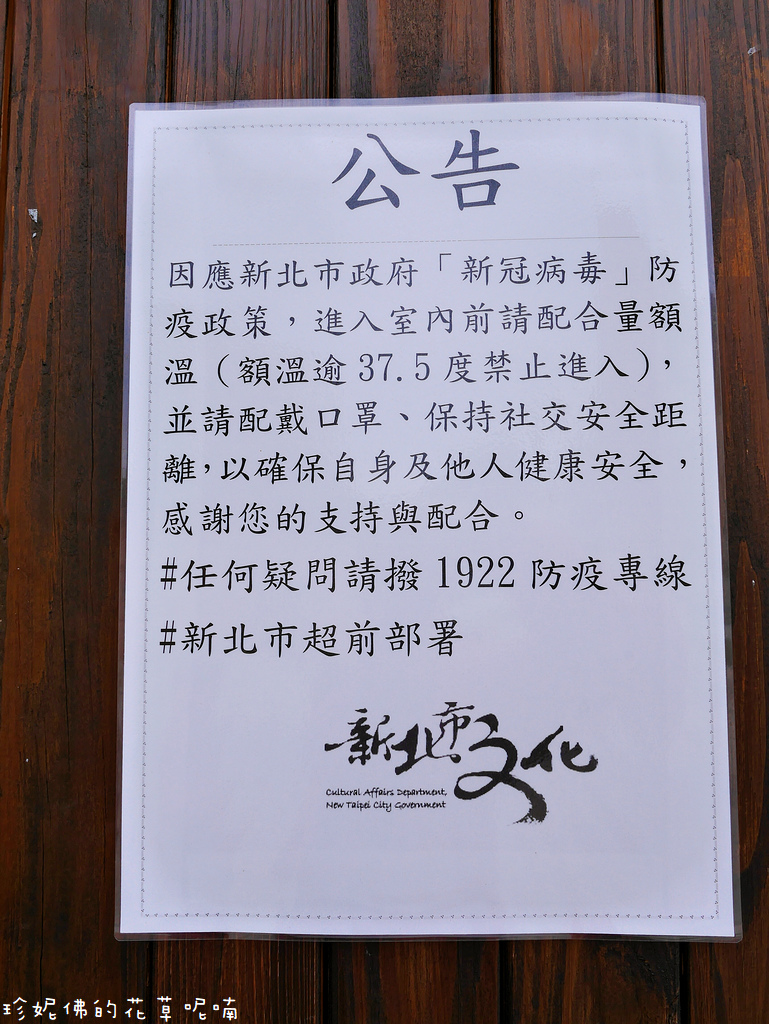 公告
因應新北市政府「新冠病毒」防
疫政策，進入室內前請配合量額
溫（額溫逾 37.5 度禁止進入），
並請配戴口罩、保持社交安全距
離，以確保自身及他人健康安全，
感謝您的支持與配合。
#任何疑問請撥 1922 防疫專線
#新北市超前部署
新北市文化
Cultural Affairs Department,
New Taipei City Government
珍妮佛的花草呢喃